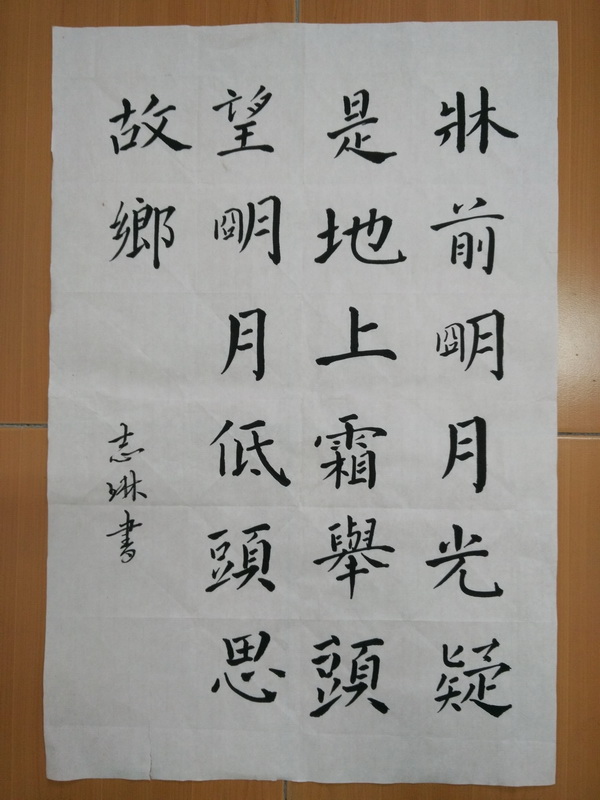 牀前朙月光疑
是地上霜舉頭
望朙月低頭思
故鄉
志琳書